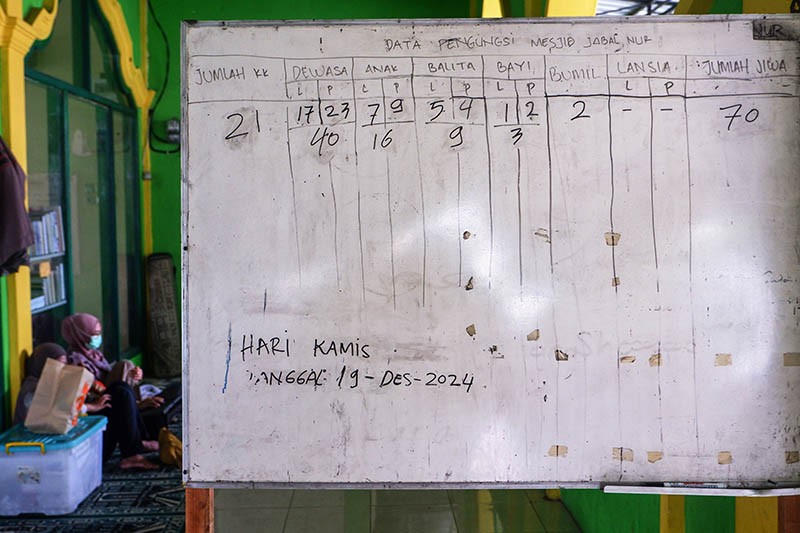 DATA PENGUNGSI MESJIB JABAL NUR
NUR
JUMLAH KK DEWASA ANAK BALITA BAYI BUMIL LANSIA JUMLAH JIWA
L P L P L P L P L P
21 17 23 7 9 5 4 1 2 2 - - 70
40 16 9 3
HARI KAMIS
TANGGAL 19-DES-2024